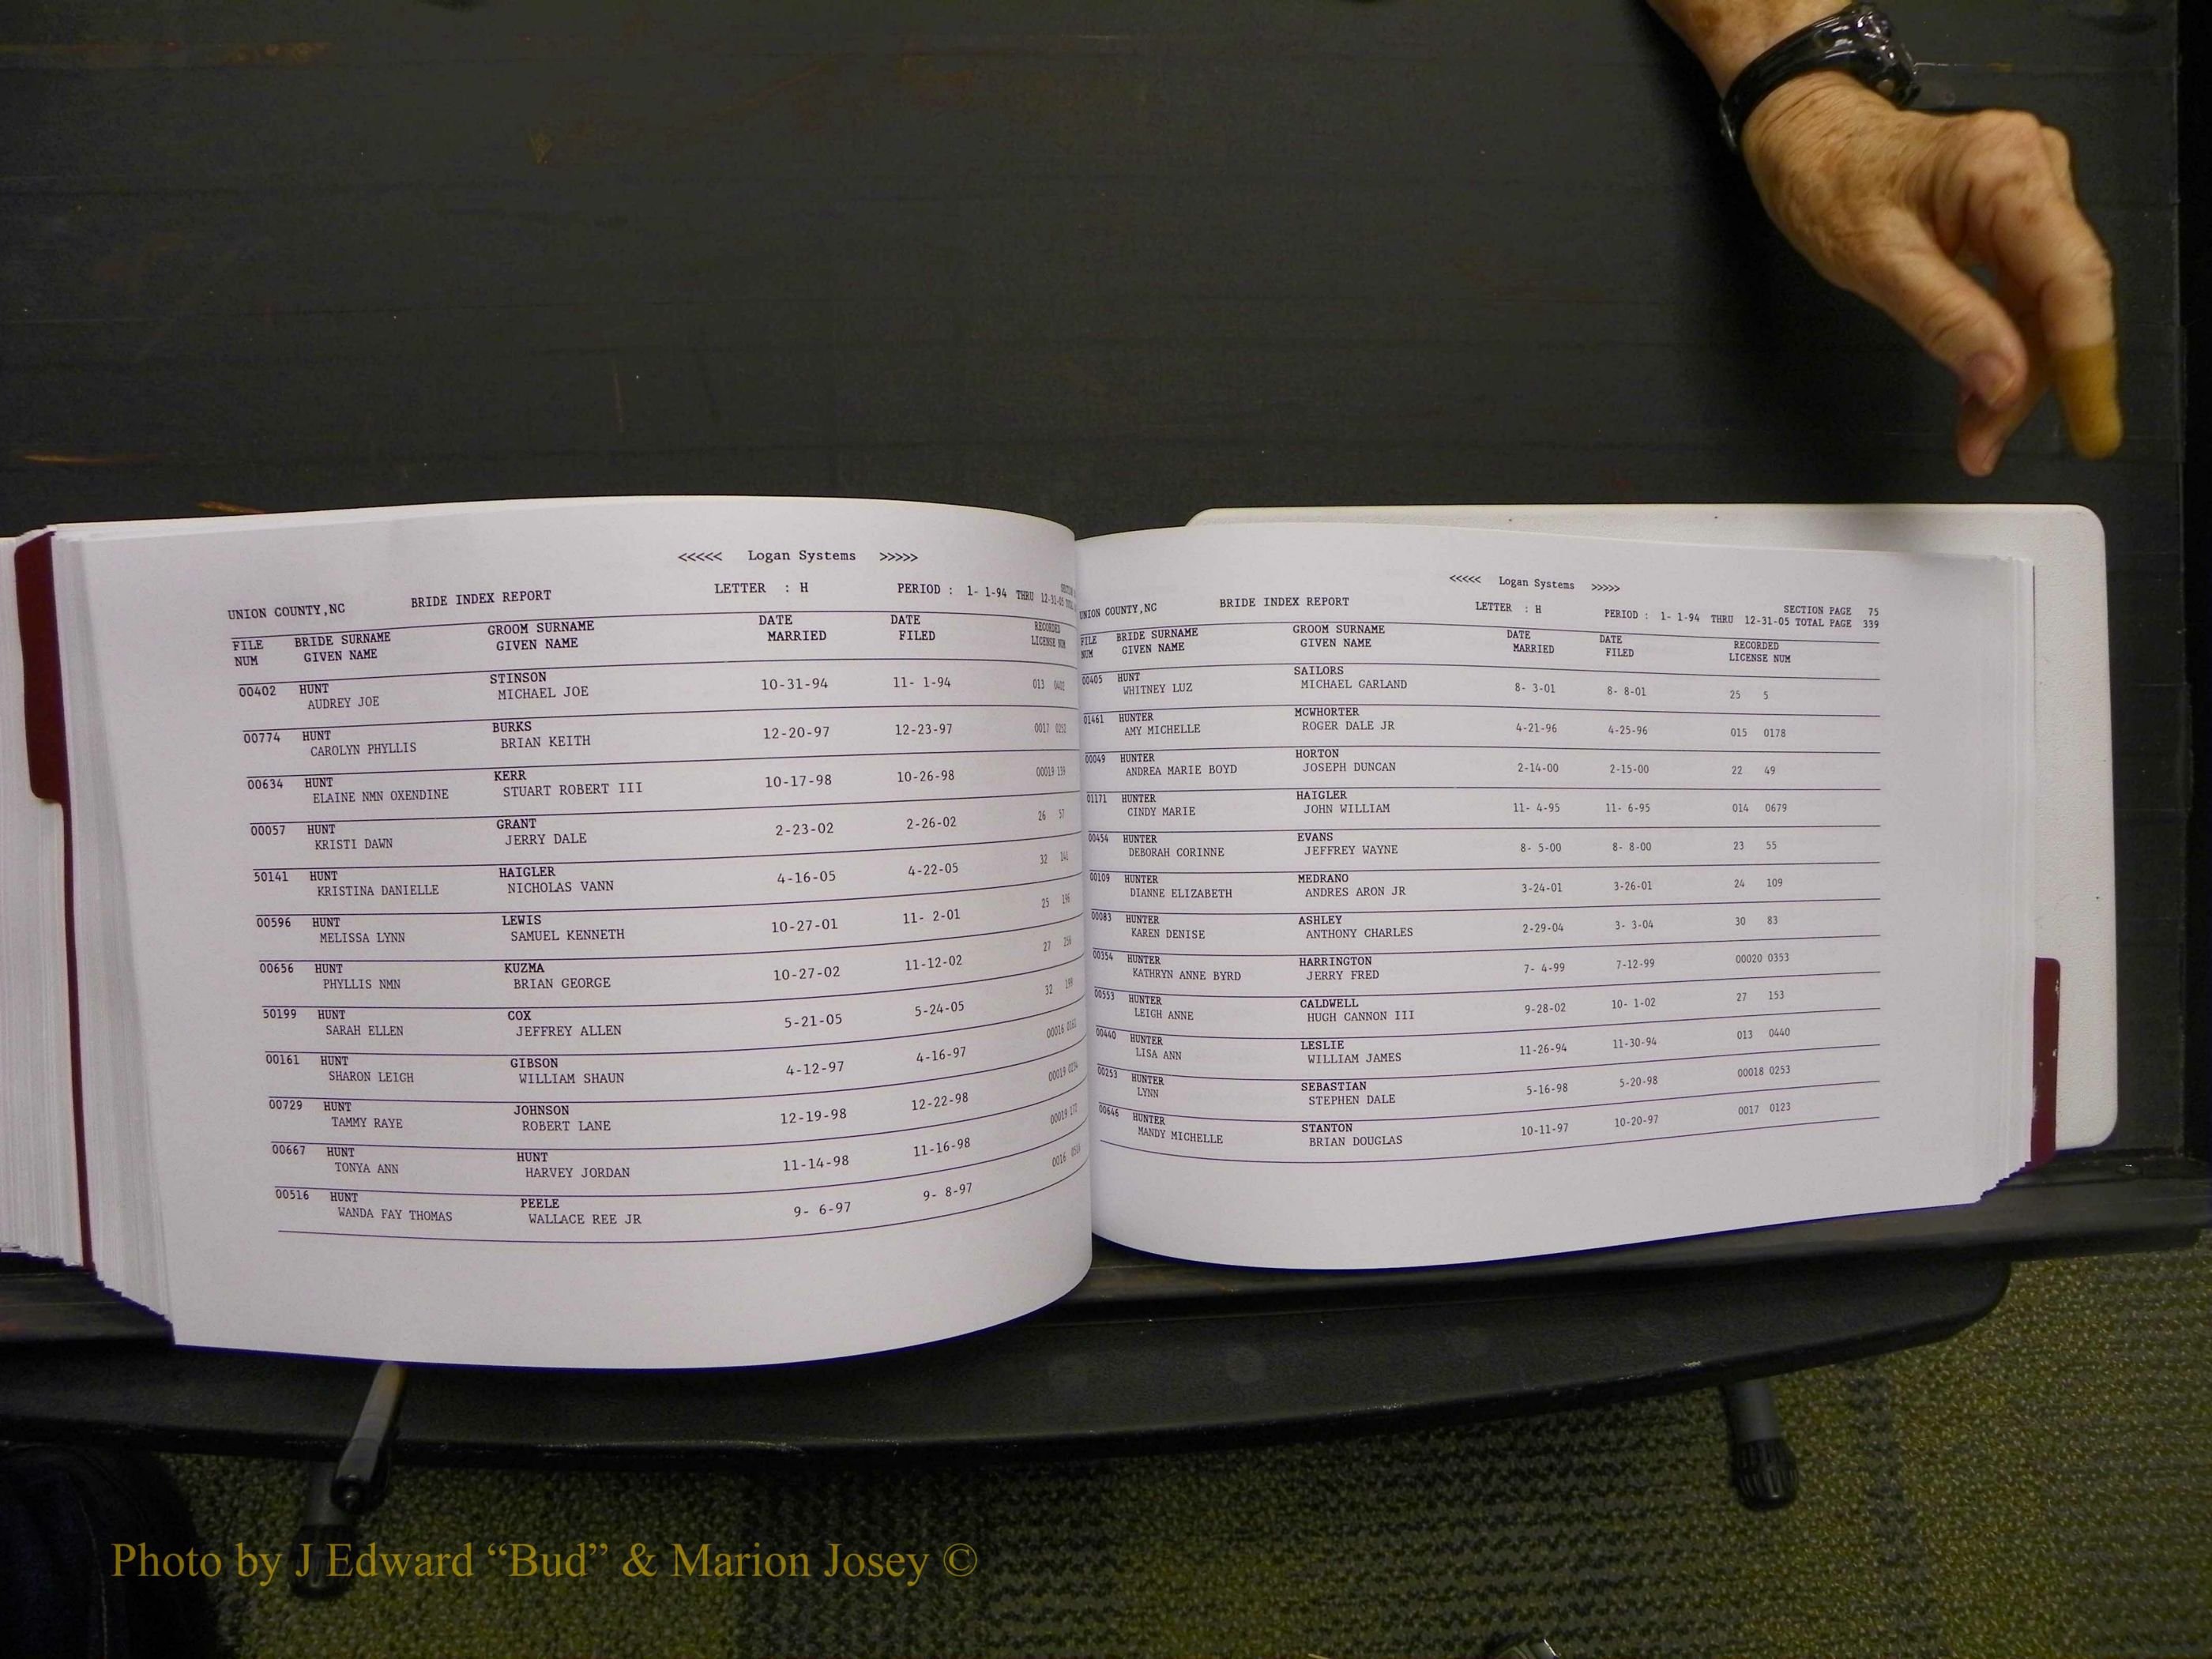 <<<<< Logan Systems >>>>>
UNION COUNTY,NC BRIDE INDEX REPORT LETTER : H PERIOD : 1- 1-94 THRU 12-31-05
FILE BRIDE SURNAME GROOM SURNAME DATE DATE RECORDED
NUM GIVEN NAME GIVEN NAME MARRIED FILED LICENSE NUM
00402 HUNT STINSON 10-31-94 11- 1-94 013 0402
AUDREY JOE MICHAEL JOE
00774 HUNT BURKS 12-20-97 12-23-97 0017
CAROLYN PHYLLIS BRIAN KEITH
00634 HUNT KERR 10-17-98 10-26-98 00019
ELAINE NMN OXENDINE STUART ROBERT III
00057 HUNT GRANT 2-23-02 2-26-02 26 57
KRISTI DAWN JERRY DALE
50141 HUNT HAIGLER 4-16-05 4-22-05 32 141
KRISTINA DANIELLE NICHOLAS VANN
00596 HUNT LEWIS 10-27-01 11- 2-01 25 196
MELISSA LYNN SAMUEL KENNETH
00656 HUNT KUZMA 10-27-02 11-12-02 27 256
PHYLLIS NMN BRIAN GEORGE
50199 HUNT COX 5-21-05 5-24-05 32 199
SARAH ELLEN JEFFREY ALLEN
00161 HUNT GIBSON 4-12-97 4-16-97 00016
SHARON LEIGH WILLIAM SHAUN
00729 HUNT JOHNSON 12-19-98 12-22-98 00019
TAMMY RAYE ROBERT LANE
00667 HUNT HUNT 11-14-98 11-16-98 00019
TONYA ANN HARVEY JORDAN
00516 HUNT PEELE 9- 6-97 9- 8-97 0016
WANDA FAY THOMAS WALLACE REE JR
<<<<< Logan Systems >>>>>
UNION COUNTY,NC BRIDE INDEX REPORT LETTER : H PERIOD : 1- 1-94 THRU 12-31-05 SECTION PAGE 75
TOTAL PAGE 339
FILE BRIDE SURNAME GROOM SURNAME DATE DATE RECORDED
NUM GIVEN NAME GIVEN NAME MARRIED FILED LICENSE NUM
00405 HUNT SAILORS 8- 3-01 8- 8-01 25 5
WHITNEY LUZ MICHAEL GARLAND
01461 HUNTER MCWHORTER 4-21-96 4-25-96 015 0178
AMY MICHELLE ROGER DALE JR
00049 HUNTER HORTON 2-14-00 2-15-00 22 49
ANDREA MARIE BOYD JOSEPH DUNCAN
01171 HUNTER HAIGLER 11- 4-95 11- 6-95 014 0679
CINDY MARIE JOHN WILLIAM
00454 HUNTER EVANS 8- 5-00 8- 8-00 23 55
DEBORAH CORINNE JEFFREY WAYNE
00109 HUNTER MEDRANO 3-24-01 3-26-01 24 109
DIANNE ELIZABETH ANDRES ARON JR
00083 HUNTER ASHLEY 2-29-04 3- 3-04 30 83
KAREN DENISE ANTHONY CHARLES
00354 HUNTER HARRINGTON 7- 4-99 7-12-99 00020 0353
KATHRYN ANNE BYRD JERRY FRED
00553 HUNTER CALDWELL 9-28-02 10- 1-02 27 153
LEIGH ANNE HUGH CANNON III
00440 HUNTER LESLIE 11-26-94 11-30-94 013 0440
LISA ANN WILLIAM JAMES
00253 HUNTER SEBASTIAN 5-16-98 5-20-98 00018 0253
LYNN STEPHEN DALE
00646 HUNTER STANTON 10-11-97 10-20-97 0017 0123
MANDY MICHELLE BRIAN DOUGLAS
Photo by J Edward “Bud” & Marion Josey ©